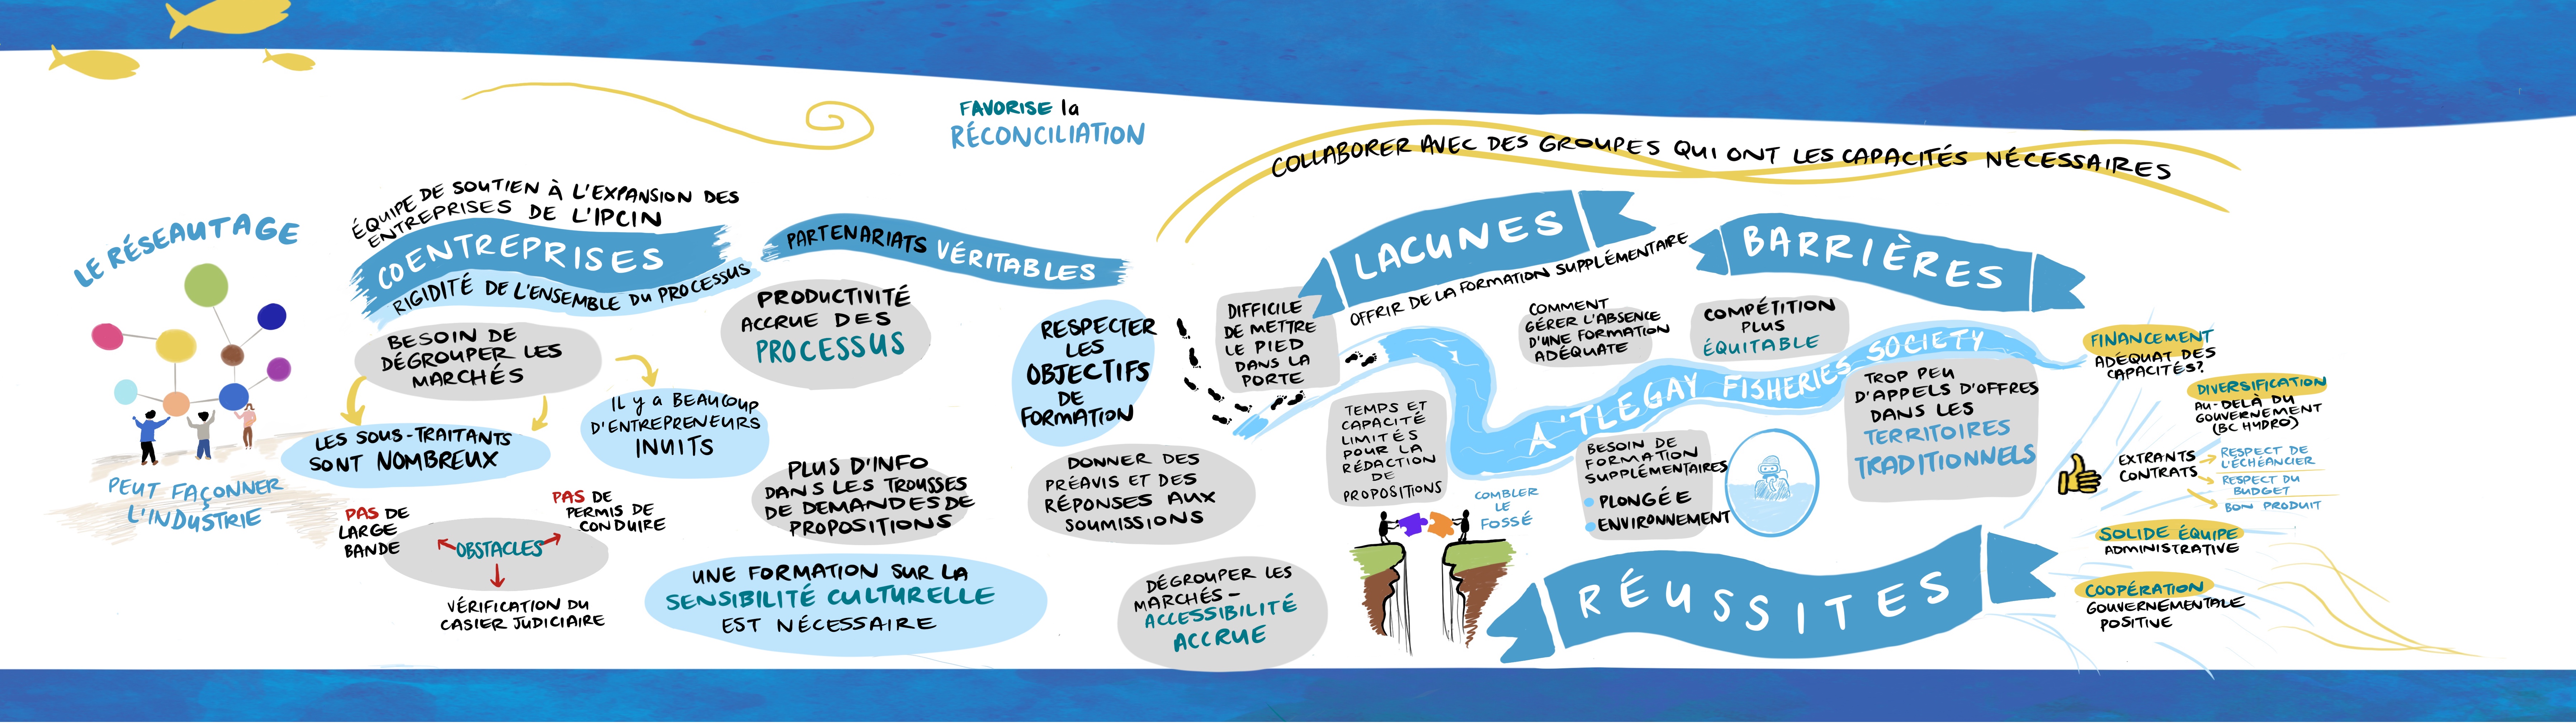 LE RÉSEAUTAGE
PEUT FAÇONNER
L'INDUSTRIE
ÉQUIPE DE SOUTIEN À L'EXPANSION DES
ENTREPRISES DE L'IPCIN
COENTREPRISES
RIGIDITÉ DE L'ENSEMBLE DU PROCESSUS
BESOIN DE
DÉGROUPER LES
MARCHÉS
LES SOUS-TRAITANTS
SONT NOMBREUX
IL y a BEAUCOUP
D'ENTREPRENEURS
INUITS
PAS DE
LARGE
BANDE
PAS DE
PERMIS DE
CONDUIRE
OBSTACLES
VÉRIFICATION DU
CASIER JUDICIAIRE
FAVORISE la
RÉCONCILIATION
PARTENARIATS VÉRITABLES
PRODUCTIVITÉ
ACCRUE DES
PROCESSUS
RESPECTER
LES
OBJECTIFS
DE
FORMATION
PLUS D'INFO
DANS LES TROUSSES
DE DEMANDES DE
PROPOSITIONS
DONNER DES
PRÉAVIS ET DES
RÉPONSES AUX
SOUMISSIONS
UNE FORMATION SUR LA
SENSIBILITÉ CULTURELLE
EST NÉCESSAIRE
DÉGROUPER LES
MARCHÉS -
ACCESSIBILITÉ
ACCRUE
COLLABORER AVEC DES GROUPES QUI ONT LES CAPACITÉS NÉCESSAIRES
LACUNES
OFFRIR DE LA FORMATION SUPPLÉMENTAIRE
DIFFICILE
DE METTRE
LE PIED
DANS LA
PORTE
TEMPS ET
CAPACITÉ
LIMITÉS
POUR LA
RÉDACTION
DE
PROPOSITIONS
COMBLER
LE
FOSSÉ
BARRIÈRES
COMMENT
GÉRER L'ABSENCE
D'UNE FORMATION
ADÉQUATE
COMPÉTITION
PLUS
ÉQUITABLE
A'TLEGAY FISHERIES SOCIETY
BESOIN DE
FORMATION
SUPPLÉMENTAIRES
PLONGÉE
ENVIRONNEMENT
TROP PEU
D'APPELS D'OFFRES
DANS LES
TERRITOIRES
TRADITIONNELS
RÉUSSITES
FINANCEMENT
ADÉQUAT DES
CAPACITÉS?
DIVERSIFICATION
AU-DELÀ DU
GOUVERNEMENT
(BC HYDRO)
EXTRANTS
CONTRATS
RESPECT DE
L'ÉCHÉANCIER
RESPECT DU
BUDGET
BON PRODUIT
SOLIDE ÉQUIPE
ADMINISTRATIVE
COOPÉRATION
GOUVERNEMENTALE
POSITIVE